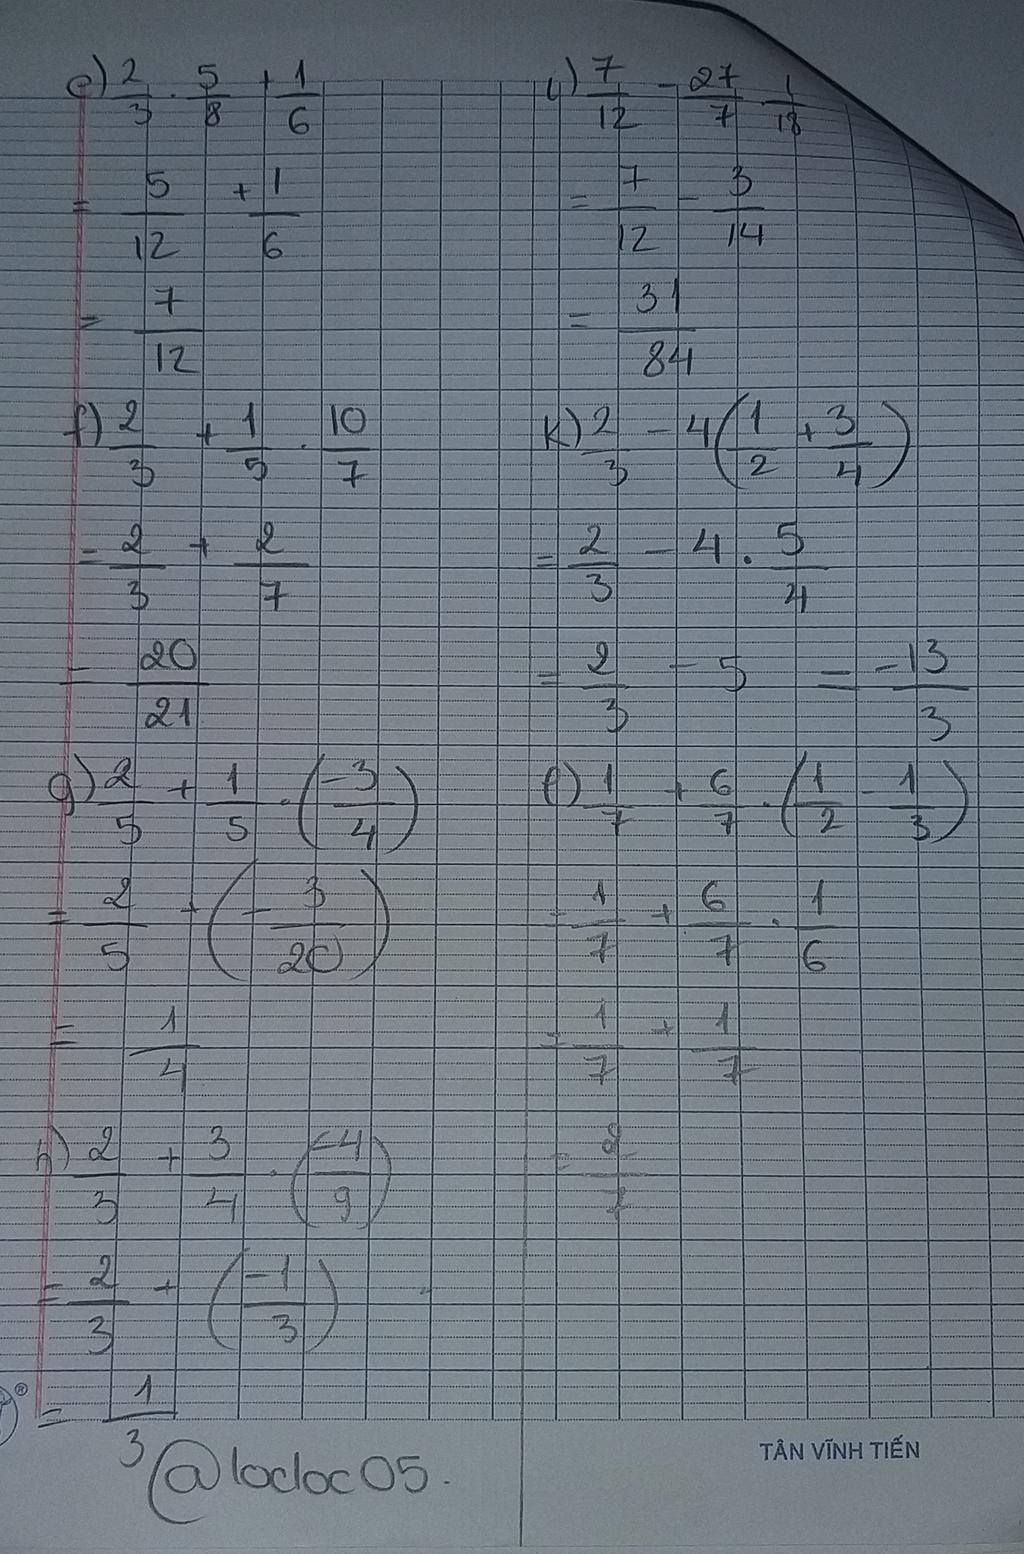 e) 2/3 . 5/8 + 1/6
= 5/12 + 1/6
= 7/12
f) 2/3 + 1/5 . 10/7
= 2/3 + 2/7
= 20/21
g) 2/5 + 1/5 . (-3/4)
= 2/5 + (-3/20)
= 1/4
h) 2/3 + 3/4 . (-4/9)
= 2/3 + (-1/3)
= 1/3
i) 7/12 - 27/7 . 1/18
= 7/12 - 3/14
= 31/84
k) 2/3 - 4(1/2 + 3/4)
= 2/3 - 4 . 5/4
= 2/3 - 5 = -13/3
l) 1/7 + 6/7 . (1/2 - 1/3)
= 1/7 + 6/7 . 1/6
= 1/7 + 1/7
= 2/7
@locloc05.
TÂN VĨNH TIẾN